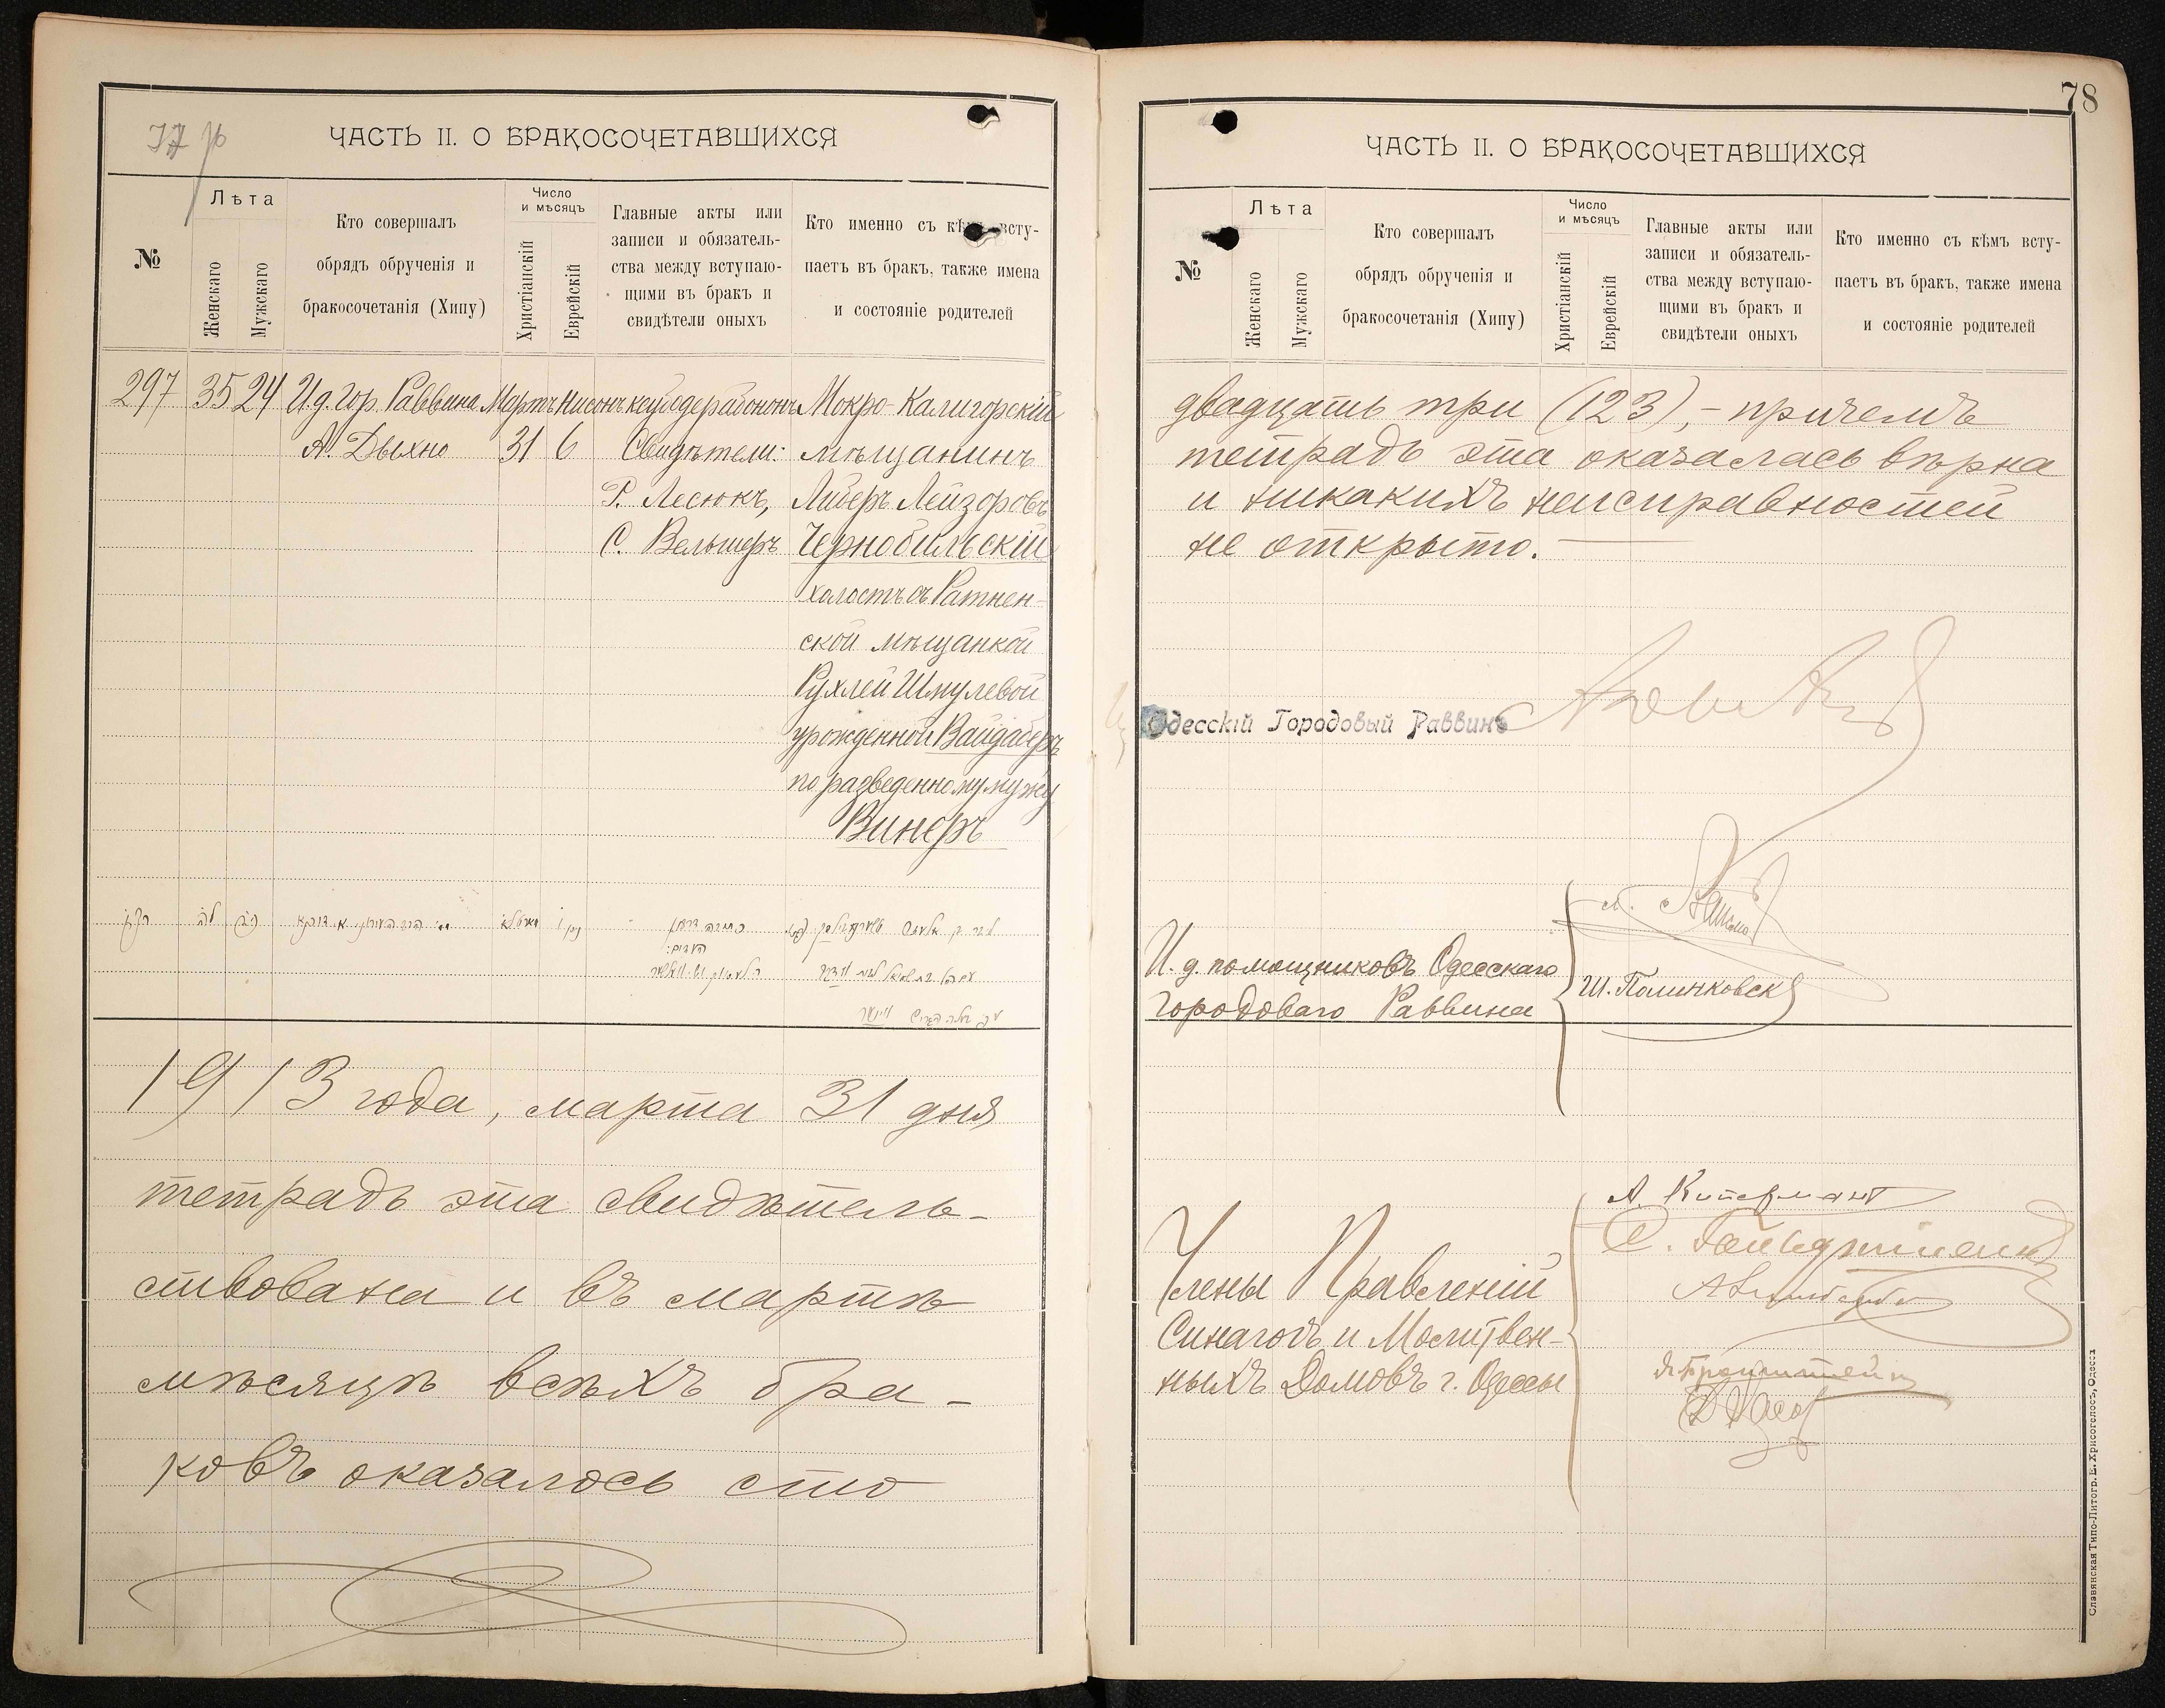 ЧАСТЬ II. О БРАКОСОЧЕТАВШИХСЯ
№
Лѣта
Женскаго
Мужскаго
Кто совершалъ
обрядъ обрученія и
бракосочетанія (Хипу)
Число
и мѣсяцъ
Христіанскій
Еврейскій
Главные акты или
записи и обязатель-
ства между вступаю-
щими въ бракъ и
свидѣтели оныхъ
Кто именно съ кѣмъ всту-
паетъ въ бракъ, также имена
и состояніе родителей
297 35 24 И.д. Гор. Раввина Мартъ Нисонъ Мокро-Калигорскій
А. Дыхно 31 6 Свидѣтели: мѣщанинъ
Р. Лесюкъ, Либеръ Лейзоровъ
С. Вельшеръ Чернобильскій
холостъ съ Ратнен-
ской мѣщанкой
Рухлей Шмулевой
урожденной Вайдаберъ
по разведенному мужу
Винеръ
1913 года, марта 31 дня
тетрадь эта свидѣтель-
ствована и въ мартѣ
мѣсяцѣ всѣхъ бра-
ковъ оказалось сто
78
ЧАСТЬ II. О БРАКОСОЧЕТАВШИХСЯ
№
Лѣта
Женскаго
Мужскаго
Кто совершалъ
обрядъ обрученія и
бракосочетанія (Хипу)
Число
и мѣсяцъ
Христіанскій
Еврейскій
Главные акты или
записи и обязатель-
ства между вступаю-
щими въ бракъ и
свидѣтели оныхъ
Кто именно съ кѣмъ всту-
паетъ въ бракъ, также имена
и состояніе родителей
двадцать три (123), - причемъ
тетрадь эта оказалась вѣрна
и никакихъ неисправностей
не открыто.
Одесскій Городовый Раввинъ
И. д. помощниковъ Одесскаго
Городоваго Раввина
Ш. Полинковск
Члены Правленій
Синагогъ и Молитвен-
ныхъ Домовъ г. Одессы
А. Киперманъ
Я. Бронштейн
Славянская Типо-Литогр. Е. Хрисогелосъ, Одесса